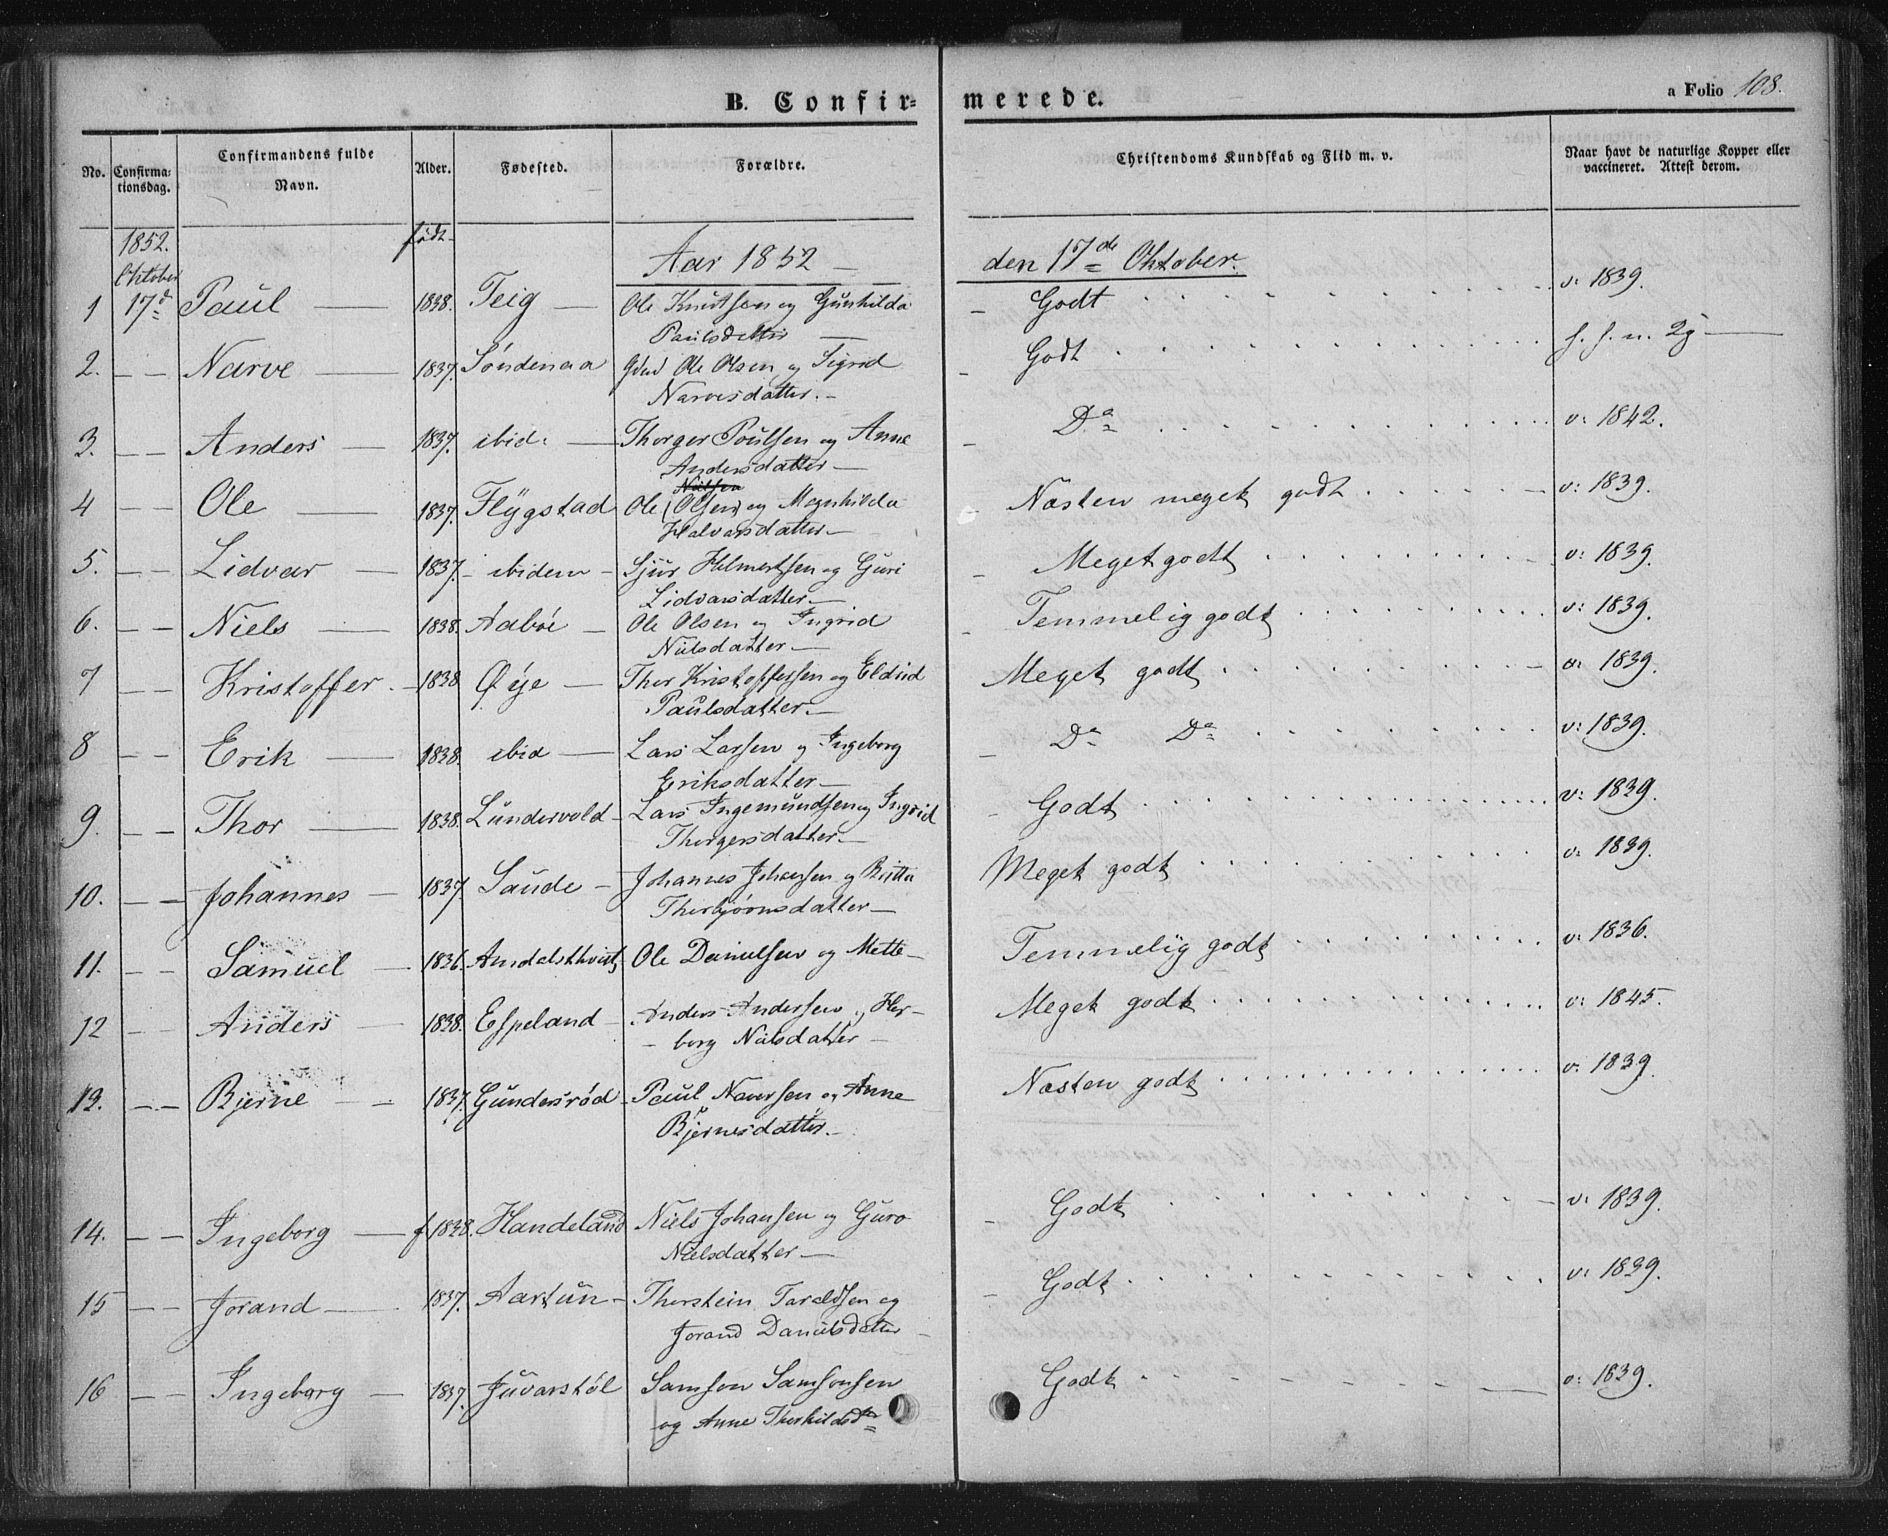 B. Confirmerede.
a Folio 108.
No. Confirmationsdag. Confirmandens fulde Navn. Alder. Fødested. Forældre. Christendoms Kundskab og Flid m. v. Naar havt de naturlige Kopper eller vaccineret. Attest derom.
1852. Oktober født Aar 1852 — den 17de Oktober.
1 17d Paul — 1838. Teig — Ole Knutsen og Gunhilda Godt v: 1839.
Paulsdatter —
2. — — Narve — 1837. Søndenaa Ole Olsen og Sigrid Godt
Narvesdatter. —
3. — — Anders — 1837. ibid: — Thorger Poulsen og Anne Da v: 1842.
Andersdatter —
4 — — Ole — 1837. Flÿgstad Ole (Olsen) og Magnhilda Næsten meget godt v: 1839.
Halvarsdatter —
5. — — Lidvar — 1837. — ibidem — Sjur Helmertsen og Guri Meget godt v: 1839.
Lidvarsdatter —
6. — — Niels — 1838. Aabøe — Ole Olsen og Ingrid Temmelig godt v: 1839.
Nielsdatter —
7 — — Kristoffer. — 1838 Øÿe — Thor Kristoffersen og Eldrid Meget godt v: 1839.
Paulsdatter. —
8 — — Erik — 1838. ibid — Lars Larsen og Ingeborg Da Da v: 1839.
Eriksdatter —
9. — — Thor — 1838. Lundervold — Lars Ingemundsen og Ingrid Godt v: 1839.
Thorgersdatter —
10. — — Johannes — 1837. Saude — Johannes Johansen og Britta Meget godt v: 1839.
Thorbjørnsdatter —
11. — — Samuel — 1836. Ole Danielsen og Mette — Temmelig godt v: 1836.
12 — — Anders — 1838. Espeland — Anders Andersen og Her- Meget godt v: 1845.
— borg Nielsdatter —
13. — — Bjerne — — 1837. Gundersrød — Paul Naversen og Anne Næsten godt v. 1839.
Bjernesdatter. —
14. — — Ingeborg — f 1838. Handeland Niels Johansen og Guro Godt v: 1839.
Nielsdatter —
15 — — Jorand — 1837. Aartun — Thorstein Taraldsen og Godt v: 1839.
Jorand Danielsdatter —
16 — — Ingeborg — 1837. Juvarstøl Samson Samsonsen Godt v: 1839.
og Anne Thorkildsdr